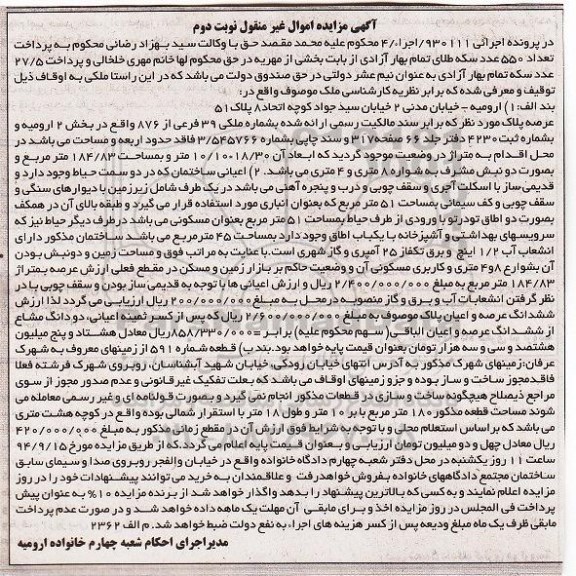 آگهی مزایده اموال غیر منقول نوبت دوم
در پرونده اجرائی ۹۳۰۱۱۱/اجراء/۴ محکوم علیه محمد مقصد حق با وکالت سید بهزاد رضائی محکوم به پرداخت
تعداد ۵۵۰ عدد سکه طلای تمام بهار آزادی از بابت بخشی از مهریه در حق محکوم لها خانم مهری خلخالی و پرداخت ۲۷/۵
عدد سکه تمام بهار آزادی به عنوان نیم عشر دولتی در حق صندوق دولت می باشد که در این راستا ملکی به اوقاف ذیل
توقیف و معرفی شده که برابر نظریه کارشناسی ملک موصوف واقع در:
بند الف:۱) ارومیه - خیابان مدنی ۲ خیابان سید جواد کوچه اتحاد ۸ پلاک ۵۱
عرصه پلاک مورد نظر که برابر سند مالکیت رسمی ارائه شده بشماره ملکی ۳۹ فرعی از ۸۷۶ واقع در بخش ۲ ارومیه و
بشماره ثبت ۴۲۳۰ دفتر جلد ۶۶ صفحه ۳۱۷ و سند چاپی بشماره ۳/۵۴۵۷۶۶ فاقد حدود اربعه و مساحت می باشد در
محل اقدام به متراژ در وضعیت موجود گردید که ابعاد آن ۱۰/۱۰۰۱۸/۳۰ متر و بمساحت ۱۸۴/۸۳ متر مربع و
بصورت دو نبش مشرف به شواره ۸ متری و ۴ متری می باشد. ۲) اعیانی ساختمان که در دو سمت حیاط وجود دارد و
قدیمی ساز با اسکلت آجری و سقف چوبی و درب و پنجره آهنی می باشد در یک طرف شامل زیرزمین با دیوارهای سنگی و
سقف چوبی و کف سیمانی بمساحت ۵۱ متر مربع که بعنوان انباری مورد استفاده قرار می گیرد و طبقه بالای آن در همکف
بصورت دو اطاق تودرتو با ورودی از طرف حیاط بمساحت ۵۱ متر مربع بعنوان مسکونی می باشد درطرف دیگر حیاط نیز که
سرویسهای بهداشتی و آشپزخانه با یکباب اطاق وجود دارد بمساحت ۴۵ مترمربع می باشد ساختمان مذکور دارای
انشعاب آب ۱/۲ اینچ و برق تکفاز ۲۵ آمپری و گاز شهری است. با عنایت به مراتب فوق و مساحت زمین و دونبش بودن
آن بشوارع ۸و۴ متری و کاربری مسکونی آن و وضعیت حاکم بر بازار زمین و مسکن در مقطع فعلی ارزش عرصه بمتراژ
۱۸۴/۸۳ متر مربع به مبلغ ۲/۴۰۰/۰۰۰/۰۰۰ ریال و ارزش اعیانی ها با توجه به قدیمی ساز بودن و سقف چوبی با در
نظر گرفتن انشعابات آب و برق و گاز منصوبه در محل به مبلغ ۲۰۰/۰۰۰/۰۰۰ ریال ارزیابی می گردد لذا ارزش
ششدانگ عرصه و اعیان پلاک موصوف به مبلغ ۲/۶۰۰/۰۰۰/۰۰۰ ریال که پس از کسر ثمینه اعیانی، دو دانگ مشاع
از ششدانگ عرصه و اعیان الباقی(سهم محکوم علیه) برابر ۸۵۸/۳۳۰/۰۰۰ریال معادل هشتاد و پنج میلیون
هشتصد و سی و سه هزار تومان بعنوان قیمت پایه خواهد بود.بند ب) قطعه شماره ۵۹۱ از زمینهای معروف به شهرک
عرفان:زمینهای شهرک مذکور به آدرس انتهای خیابان رودکی، خیابان شهید آبشناسان، روبروی شهرک فرشته فعلا
فاقدمجوز ساخت و ساز بوده و جزو زمینهای اوقاف می باشد که بعلت تفکیک غیرقانونی و عدم صدور مجوز از سوی
مراجع ذیصلاح هیچگونه ساخت و سازی در قطعات مذکور انجام نمی گیرد و بصورت قولنامه ای و غیر رسمی معامله می
شوند مساحت قطعه مذکور ۱۸۰ متر مربع با بر ۱۰ متر و طول ۱۸ متر با استقرار شمالی بوده واقع در کوچه هشت متری
می باشد که براساس استعلام محلی و با توجه به شرایط فوق ارزش آن در مقطع زمانی مذکور به مبلغ ۴۲۰/۰۰۰/۰۰۰
ریال معادل چهل و دو میلیون تومان ارزیابی و بعنوان قیمت پایه اعلام می گردد.که از طریق مزایده مورخ ۹۴/۹/۱۵
ساعت ۱۱ روز یکشنبه در محل دفتر شعبه چهارم دادگاه خانواده واقع در خیابان والفجر روبروی صدا و سیمای سابق
ساختمان مجتمع دادگاههای خانواده بفروش خواهدرفت و علاقمندان به خرید می توانند پیشنهادات خود را در روز
مزایده اعلام نمایند و به کسی که بالاترین پیشنهاد را بدهد واگذار خواهد شد از برنده مزایده ۱۰% به عنوان پیش
پرداخت فی المجلس در روز مزایده اخذ و برای مابقی آن مهلت یک ماهه داده خواهد شد و در صورت عدم پرداخت
مابقی ظرف یک ماه مبلغ ودیعه پس از کسر هزینه های اجراء به نفع دولت ضبط خواهد شد. م الف ۲۳۶۲
مدیر اجرای احکام شعبه چهارم خانواده ارومیه